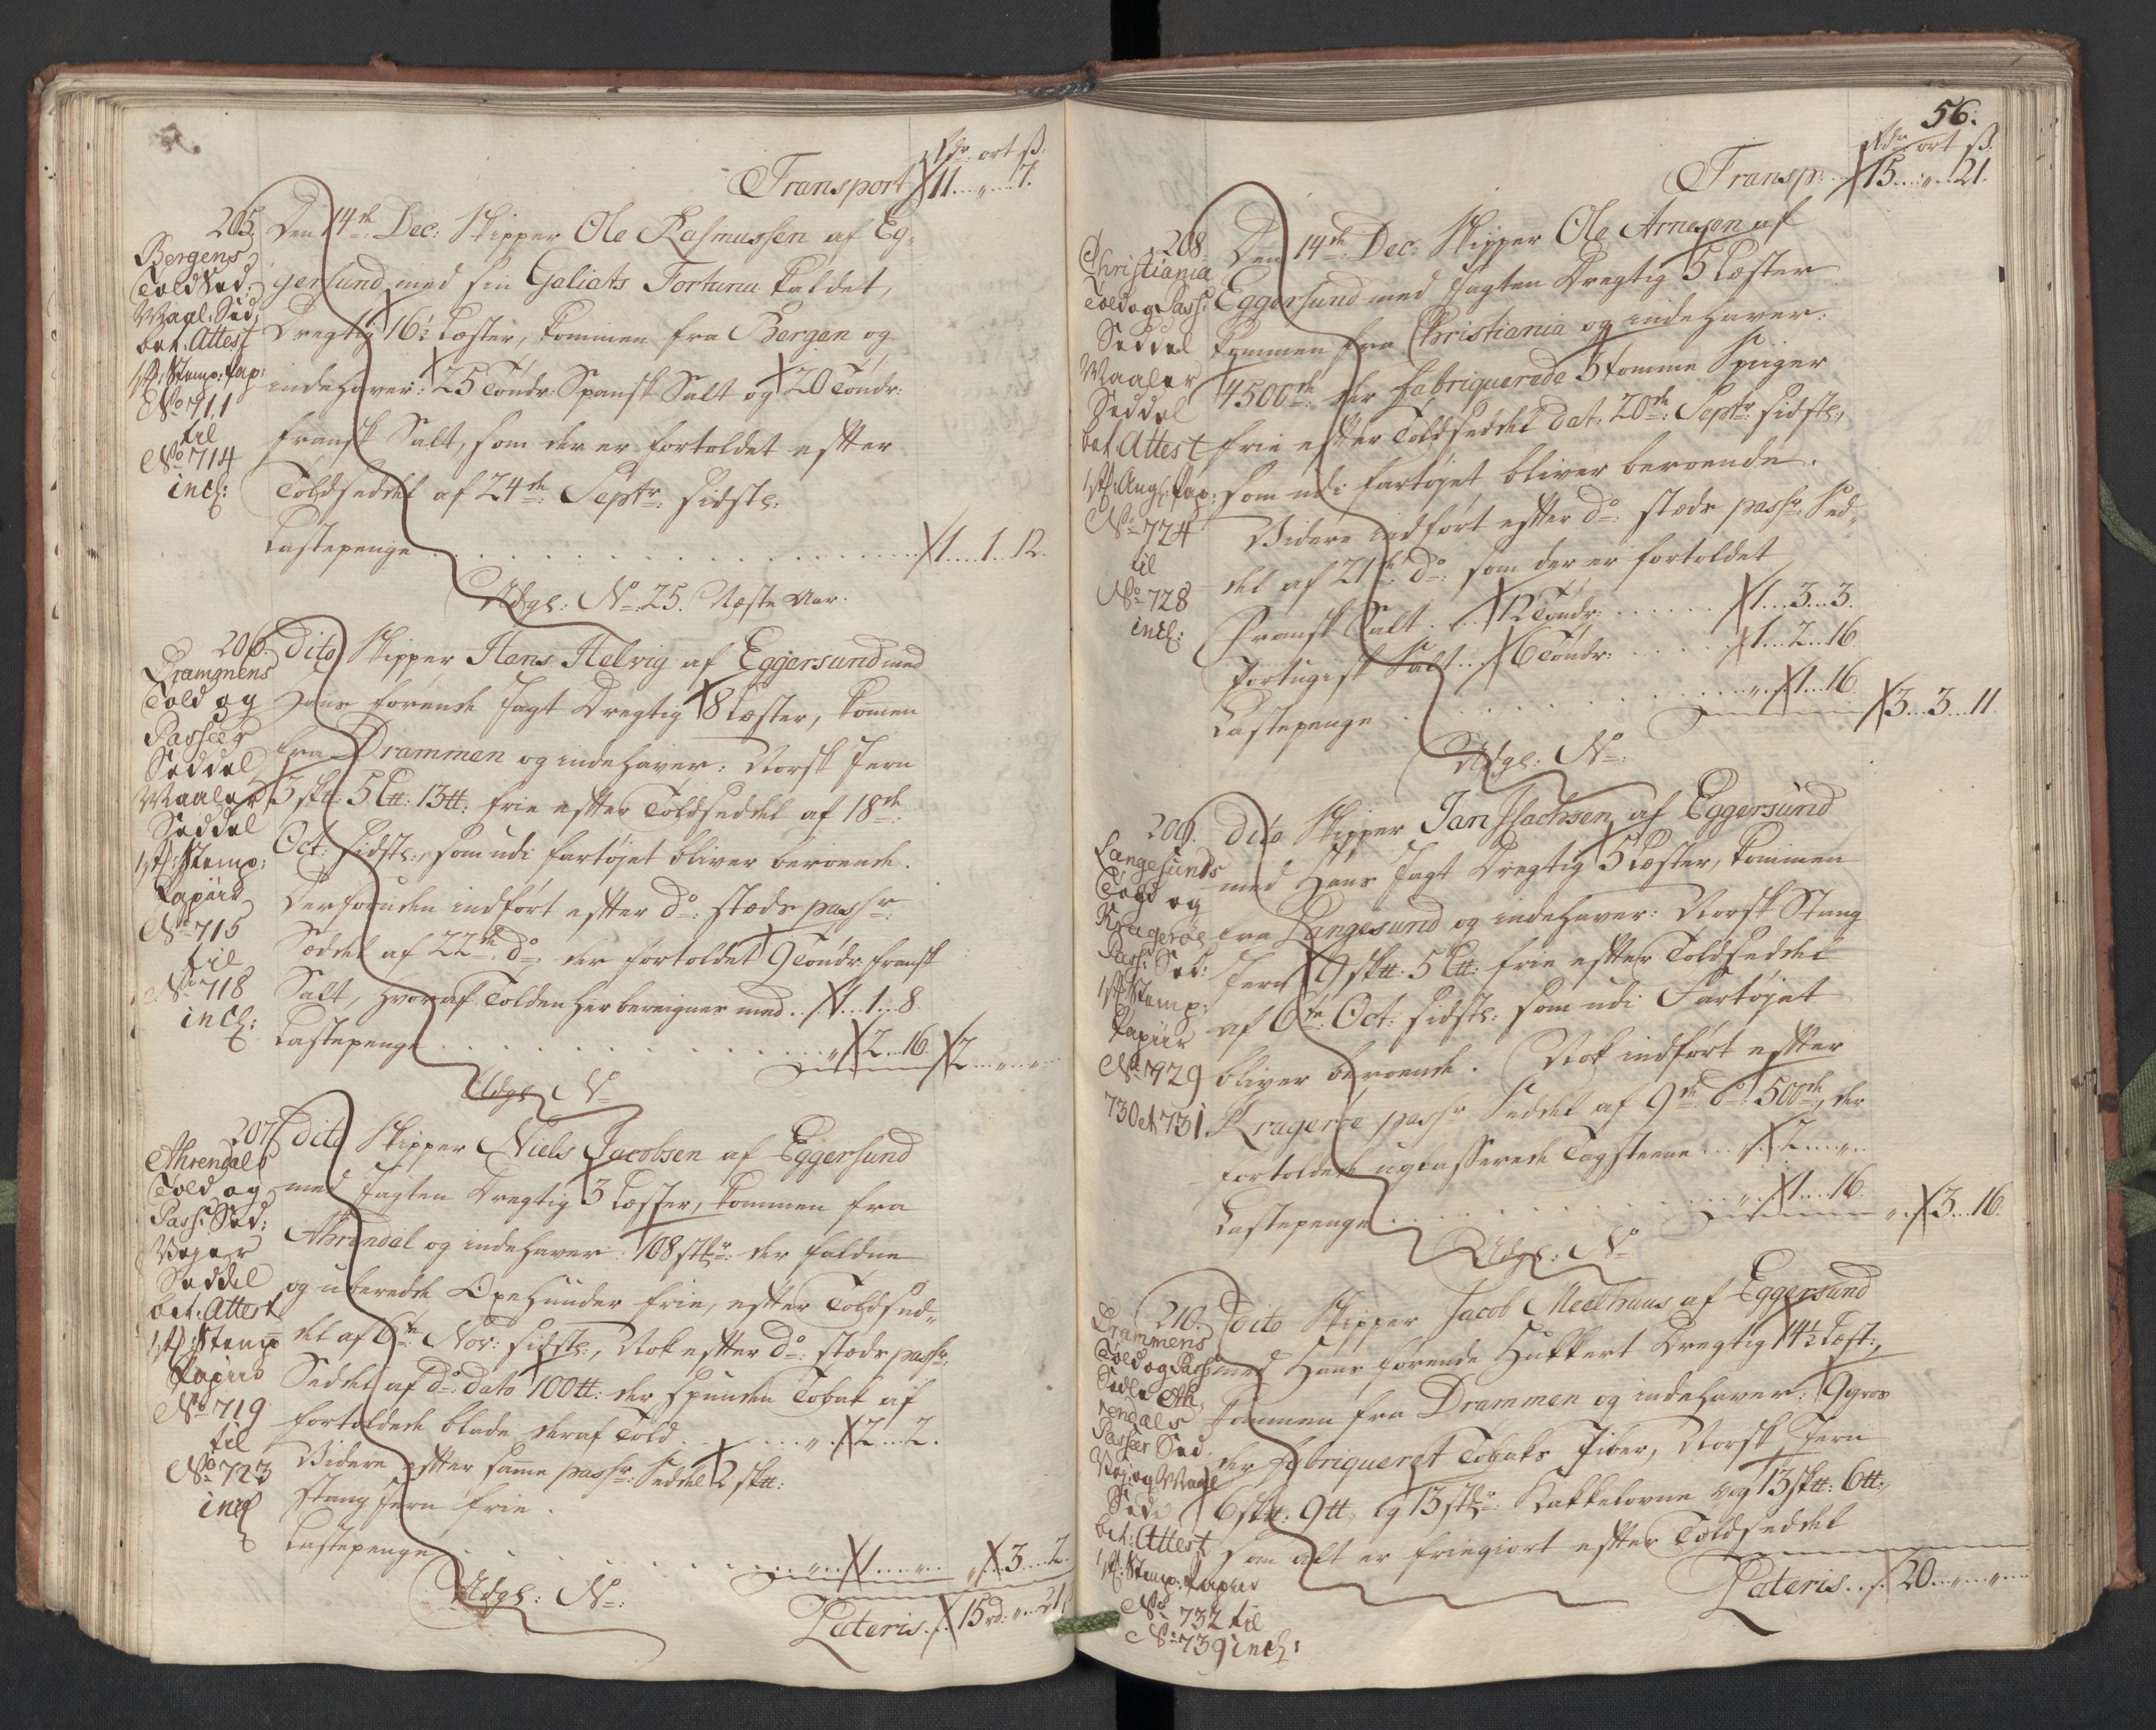 Rdr: ort ß:
Transport 11 . . „ . . 7.
205.
Bergens
Told Sed:
Maal: Sed:
bet: Attest
1 st: Stemp: Pap:
No 711
til
No 714
incl:
Den 14de Dec: Skipper Ole Rasmussen af Eg-
gersund med sin Galiats Fortuna kaldet,
Dregtig 16½ Læster, kommen fra Bergen og
indehaver: 25 Töndr: Spansk Salt og 20 Töndr:
fransk Salt, som der er fortoldet efter
Toldseddel af 24de Septr: sidstl:
Lastepenge . . . 1 . . 1 . . 12.
Udgl: No 25. Næste Aar.
206.
Drammens
Told og
Passeer
Seddel
Maaler
Seddel
1 st: Stemp:
Papiir
No 715
til
No 718
incl:
dito Skipper Hans Helvig af Eggersund med
Hans förende Jagt Dregtig 8 Læster, kommen
fra Drammen og indehaver: Norsk Jern
3 sk℔: 5 L℔: 13 ℔: frie efter Toldseddel af 18de
Oct: sidstl:, som udi fartöjet bliver beroende.
Desforuden indfört efter do: stæds passr:
Seddel af 22de do: der fortoldet 9 Töndr fransk
Salt, hvoraf Tolden her beregnes med . . 1 . . 1 . . 8.
Lastepenge . . . „ . . 2 . . 16. 2 . . „ . . „
Udgl: No
207.
Ahrendals
Told og
Pass: Sed:
Vejer
Seddel
bet: Attest
1 st: Stemp
Papiir
No 719
til
No 723
incl
dito Skipper Niels Jacobsen af Eggersund
med Jagten Dregtig 3 Læster, kommen fra
Ahrendal og indehaver: 108 stkr: der faldne
og uberedde Oxe Huuder frie, efter Toldsed-
del af 6te Nov: sidstl:, Nok efter do: stæds passr:
Seddel af do: dato 100 ℔: der spunden Tobak af
fortoldede blade, deraf Told . . . „ . . 2 . . 2.
Videre efter samme passr: Seddel 2 sk℔:
stang Jern frie.
Lastepenge . . . „ . . 1 . . „ „ . . 3 . . 2.
Udgl: No:
Lateris . . 15 rd: „ . . 21
56.
Rdr ort ß.
Transp: . . 15 . . „ . . 21.
208.
Christiania
Told og Pass:
Seddel
Maaler
Seddel
bet Attest
1 st: Augl: Pap:
No 724
til
No 728
incl:
Den 14de Dec: Skipper Ole Arnesen af
Eggersund med Jagten Dregtig 5 Læster
kommen fra Christiania og indehaver:
4500de der fabriquerede 3 tomme Spiiger
frie efter Toldseddel dat: 20de Septr: sidstl:,
som udi fartöjet bliver beroende.
Videre indfört efter do: stæds passr: Sed-
del af 21de do: som der er fortoldet
Fransk Salt . . 12 Töndr: . . . 1 . . 3 . . 3.
Portugisk Salt . . 6 Töndr: . . . 1 . . 2 . . 16.
Lastepenge . . . „ . . 1 . . 16. 3 . . 3 . . 11
Udgl: No:
209.
Langesunds
Told og
Krageröe
Pass: Sed:
1 st: Stemp:
Papiir
No 729
730 & 731.
dito Skipper Jan Isachsen af Eggersund
med Hans Jagt Dregtig 5 Læster, kommen
fra Langesund og indehaver: Norsk Stang
Jern 9 sk℔: 5 L℔: frie efter Toldseddel
af 6te Oct: sidstl: som udi Fartöjet
bliver beroende. Nok indfört efter
Krageröe passr Seddel af 9de do: 500de, der
fortoldede uglasserede Tagsteene . . . 2 . . „
Lastepenge . . . „ . . 1 . . 16. „ . . 3 . . 16.
Udgl: No
210.
Drammens
Told og Pass:
Sedle Ah-
rendals
Passeer Sed.
Vej: og Maal
Sed:
bet: Attest
1 st: Stemp: Papiir
No 732 til
No 739 incl:
dito Skipper Jacob Meelhuus af Eggersund
med Hans förende Hukkert Dregtig 14½ Læst:,
kommen fra Drammen og indehaver: 9 gros
der fabriqueret Tobaks Piber, Norsk Jern
6 sk℔: 9 ℔, og 13 stkr: Kakkelovne vog 13 sk℔: 6 ℔:,
som alt er friegiort efter Toldseddel
Lateris . . 20 . . „ . . „